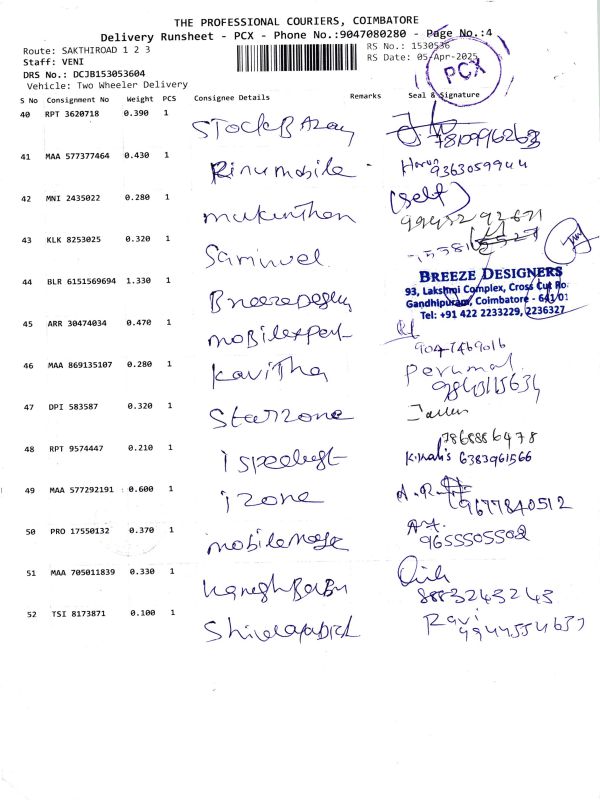 THE PROFESSIONAL COURIERS, COIMBATORE
Delivery Runsheet - PCX - Phone No.:9047080280 - Page No.:4
Route: SAKTHIROAD 1 2 3
RS No.: 1530536
Staff: VENI
RS Date: 05-Apr-2025
DRS No.: DCJB153053604
PCX
Vehicle: Two Wheeler Delivery
S No Consignment No Weight PCS Consignee Details Remarks Seal & Signature
40 RPT 3620718 0.390 1 STockBAzay 7810996263
41 MAA 577377464 0.430 1 Rinumobile 9363059944
42 MNI 2435022 0.280 1 mukunthan (Self)
43 KLK 8253025 0.320 1 Samuvel
44 BLR 6151569694 1.330 1
BREEZE DESIGNERS
93, Lakshmi Complex, Cross Cut Ro
Gandhipuram, Coimbatore - 641 01
Tel: +91 422 2233229, 2236327
45 ARR 30474034 0.470 1 mobilexpert
46 MAA 869135107 0.280 1 Kavitha Perumal
47 DPI 583587 0.320 1 Starzone
7868886478
48 RPT 9574447 0.210 1 6383961566
49 MAA 577292191 0.600 1 izone 9677840512
50 PRO 17550132 0.370 1 9655505502
51 MAA 705011839 0.330 1 8883243243
52 TSI 8173871 0.100 1 Ravi